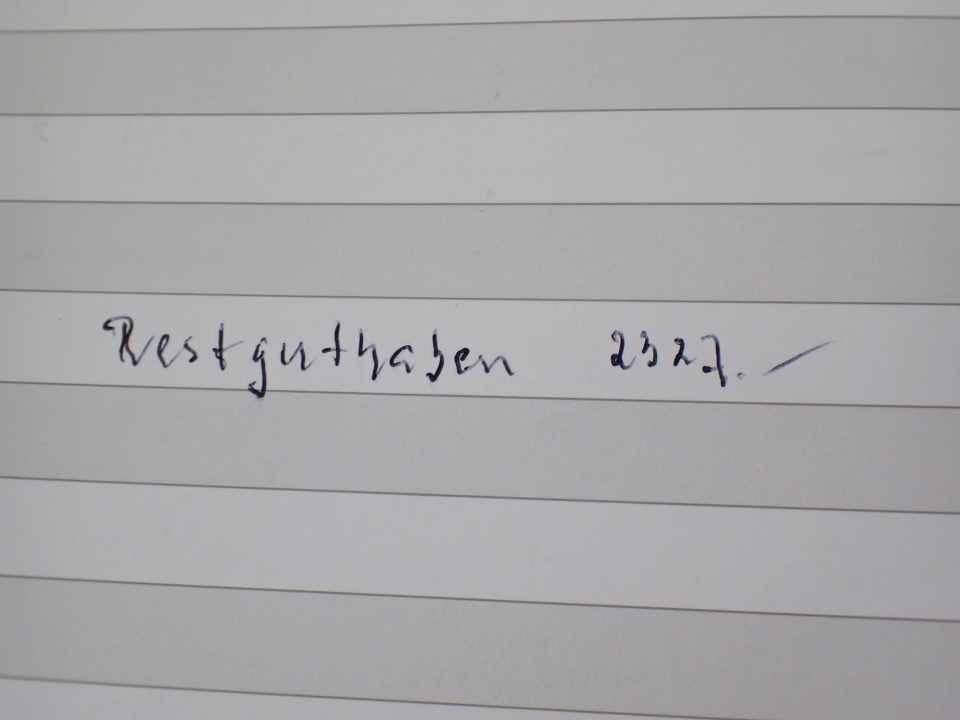 Restguthaben 2327.–